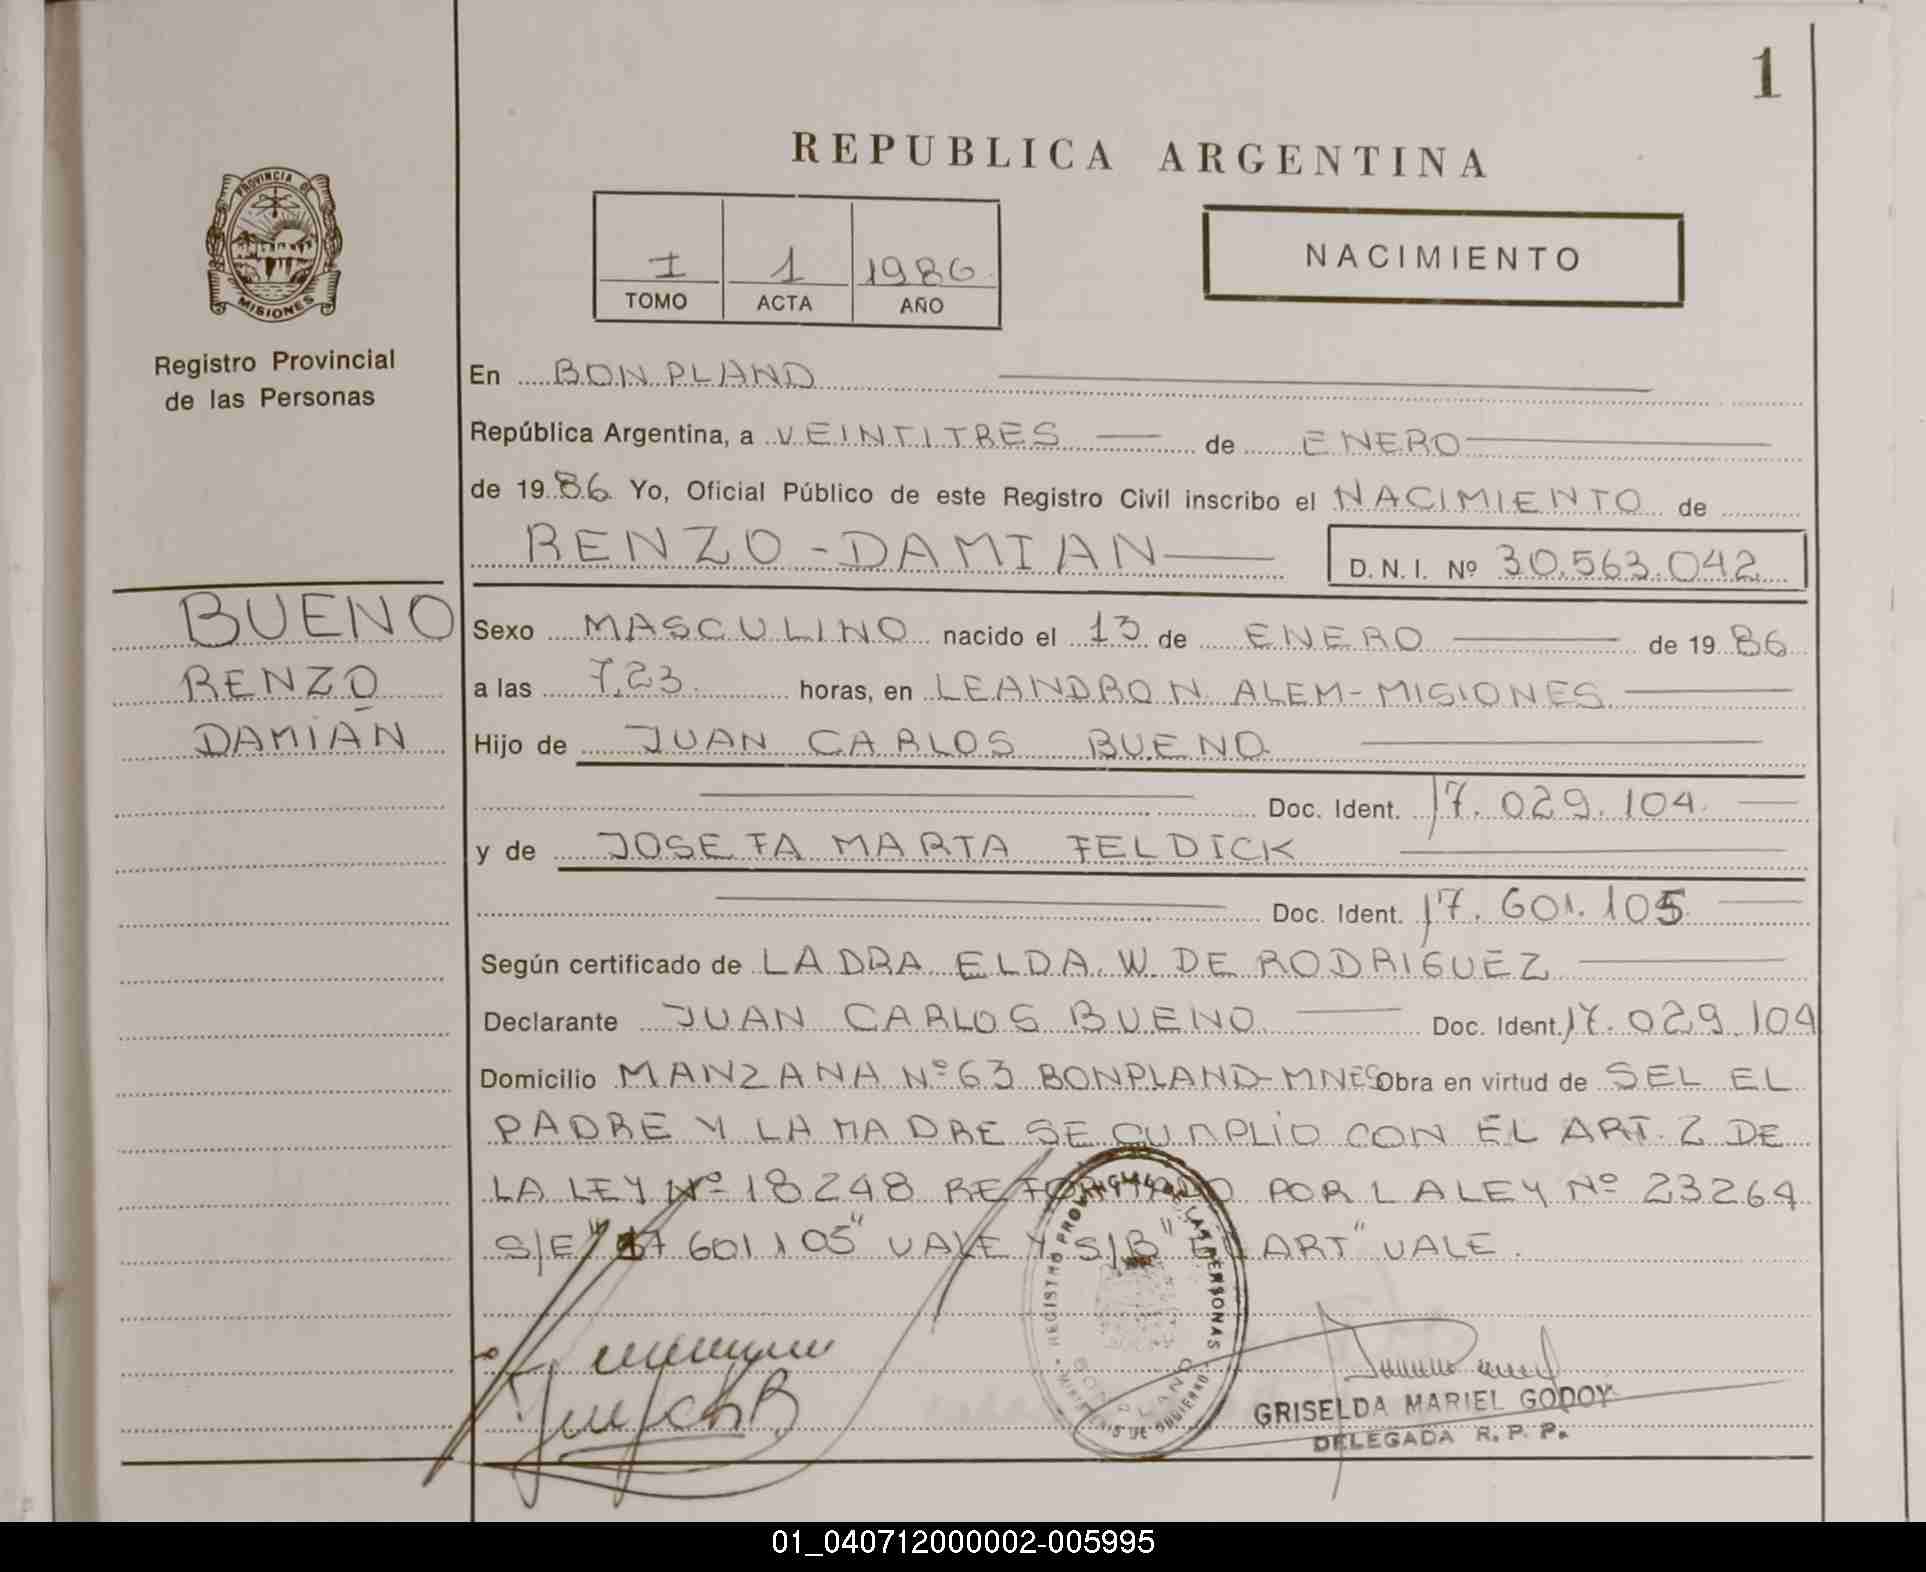 1
REPUBLICA ARGENTINA
PROVINCIA DE
MISIONES
I 1 1986
TOMO ACTA AÑO
NACIMIENTO
Registro Provincial
de las Personas
En BONPLAND
República Argentina, a VEINTITRES de ENERO
de 1986 Yo, Oficial Público de este Registro Civil inscribo el NACIMIENTO de
RENZO-DAMIAN D.N.I. Nº 30.563.042
BUENO
RENZO
DAMIÁN
Sexo MASCULINO nacido el 13 de ENERO de 1986
a las 7,23 horas, en LEANDRO N. ALEM-MISIONES
Hijo de JUAN CARLOS BUENO
Doc. Ident. 17.029.104
y de JOSEFA MARTA FELDICK
Doc. Ident. 17.601.105
Según certificado de LA DRA ELDA W. DE RODRIGUEZ
Declarante JUAN CARLOS BUENO Doc. Ident. 17.029.104
Domicilio MANZANA Nº 63 BONPLAND-MNES Obra en virtud de SEL EL
PADRE Y LA MADRE SE CUMPLIO CON EL ART. 2 DE
LA LEY Nº 18248 REFORMADO POR LA LEY Nº 23264
S/E "17 601105" VALE Y S/B "EL ART" VALE.
REGISTRO PROVINCIAL DE LAS PERSONAS
BONPLAND
MINISTERIO DE GOBIERNO
GRISELDA MARIEL GODOY
DELEGADA R. P. P.
01_040712000002-005995